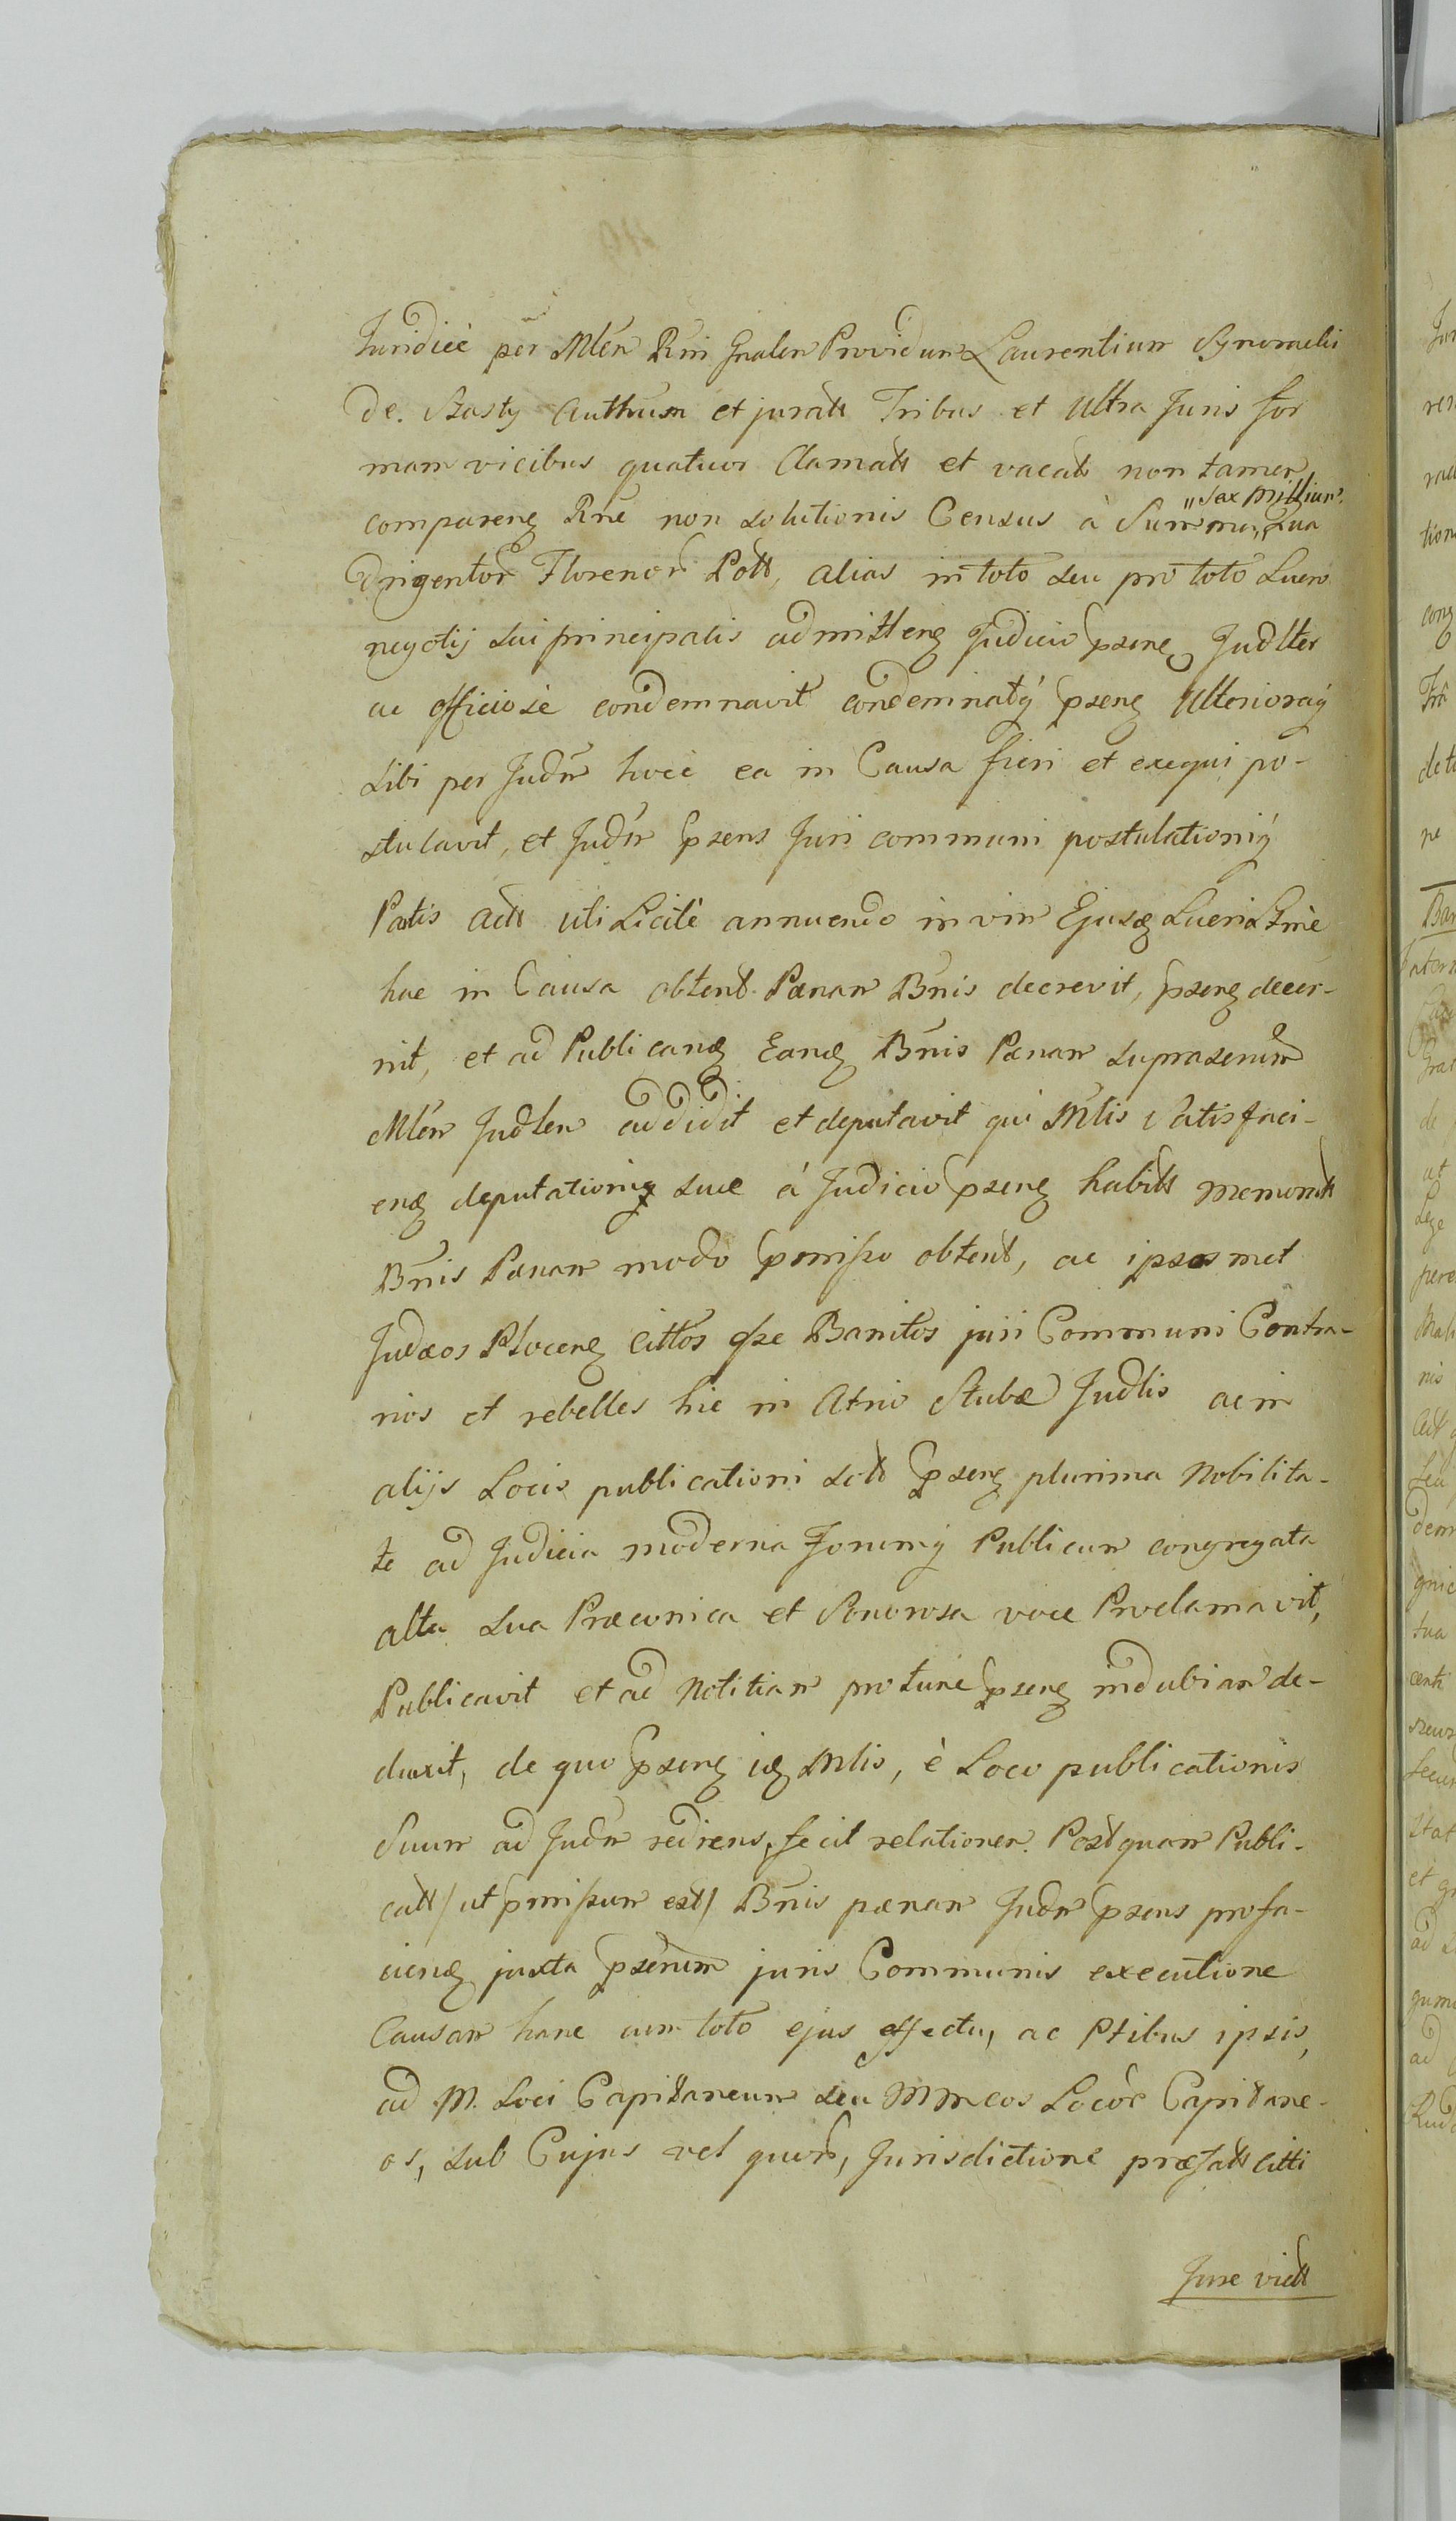 Juridicè per Mlēn Rni Gnalen Providum Laurentium Synoradzki
de Szasty Authum et juratt Tribus et Ultra Juris for
mam vicibus quatuor Clamatt et vacatt non tamen
compareng Rne non solutionis Census à Summa, Qua
"Sex Millium
dringentor Florenor Poltt, alias in toto seu pro toto Lucro
negotij sui principalis admitteng Judicio pseng Judlter
ac officiosè condemnavit condemnatq́ pseng Ulterioraq́
sibi per Judm hocce ea in Causa fieri et exequi po-
stulavit, et Judm psens Juri communi postulationiq́
Patis actt uti Licitè annuendo in vim Ejusdg Lucri Ltmè
hac in Causa obtent Pænam Bnis decrevit, pseng decer-
nit, et ad Publicang Eandg Bnis Pænam suprasenum
Mlēm Judlem addidit et deputavit qui Mtlis Satisfaci-
eng deputationiq suæ á Judicio pseng habitt memoratt
Bnis Pænam modo pmisso obtent, ac ipsosmet
Judæos Ploceng cittos qse Banitos juri Communi Contra-
rios et rebelles hic in Atrio Stubæ Judlis ac in
alijs Locis publicationi sctt pseng plurima Nobilita-
te ad Judicia moderna Forumq́ Publicum congregata
alta sua Præconica et Sonorosa voce Proclamavit,
Publicavit et ad Notitiam protunc pseng indubiam de-
duxit, de quo pseng idg Mtlis, è Loco publicationis
Suum ad Judm rediens, fecit relationem. Postquam Publi-
catt / ut pmissum est / Bnis pænam Judm psens profa-
cieng juxta pserium juris Communis executione
Causam hanc cum toto ejus effectu, ac Ptibus ipsis,
ad M. Loci Capitaneum seu MMcos Locor Capitane-
os, sub Cujus vel quor, Jurisdictione præfatt citti
Jure victt